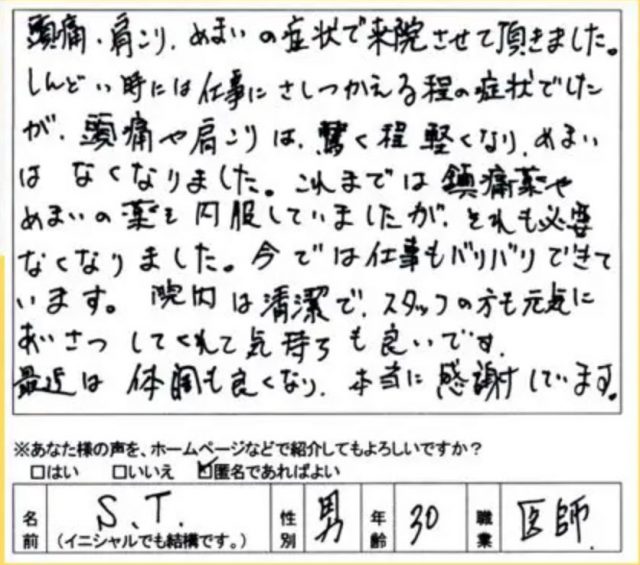 頭痛・肩こり、めまいの症状で来院させて頂きました。
しんどい時には仕事にさしつかえる程の症状でした
が、頭痛や肩こりは、驚く程軽くなり、めまい
はなくなりました。これまでは鎮痛薬や
めまいの薬を内服していましたが、それも必要
なくなりました。今では仕事もバリバリできて
います。院内は清潔で、スタッフの方も元気に
あいさつしてくれて気持ちも良いです。
最近は体調も良くなり、本当に感謝しています。
※あなた様の声を、ホームページなどで紹介してもよろしいですか？
□はい □いいえ ☑匿名であればよい
名前 S.T. (イニシャルでも結構です。) 性別 男 年齢 30 職業 医師